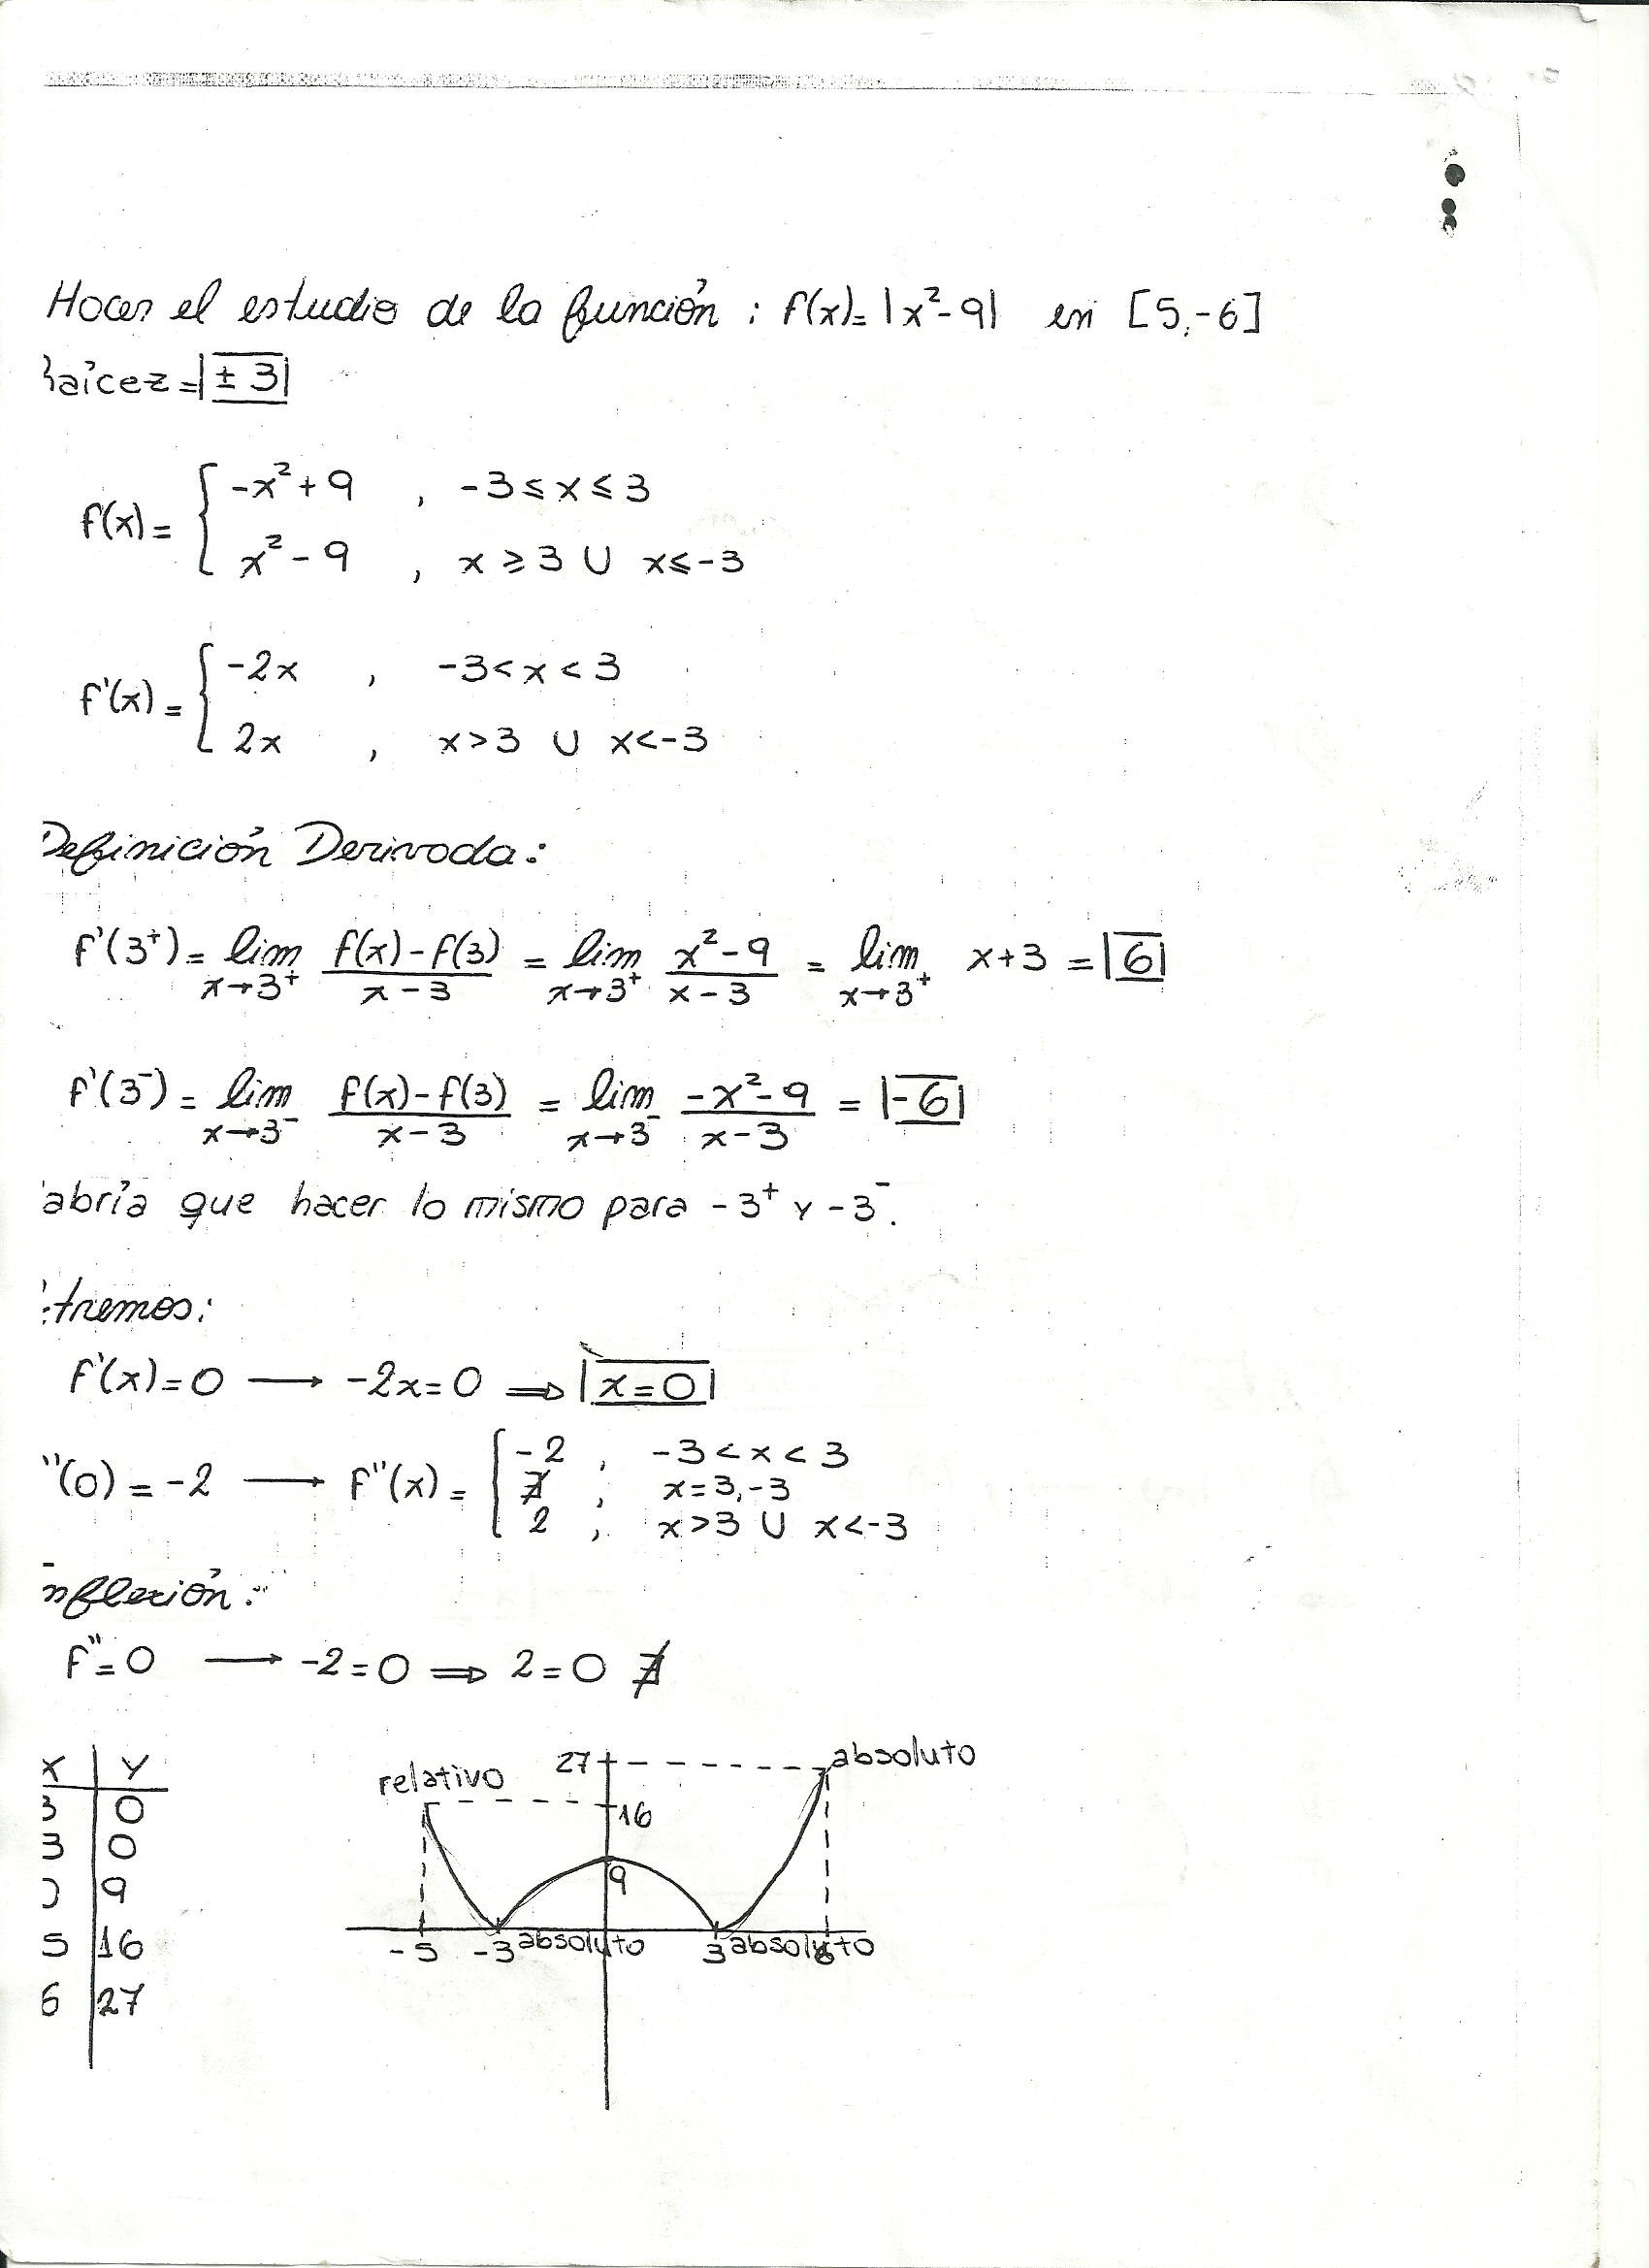 Hacer el estudio de la función : f(x)= |x²-9| en [5,-6]
raícez = |±3|
f(x)= { -x²+9 , -3≤x≤3
x²-9 , x≥3 ∪ x≤-3
f'(x)= { -2x , -3<x<3
2x , x>3 ∪ x<-3
Definición Derivada:
f'(3⁺)= lim x→3⁺ (f(x)-f(3))/(x-3) = lim x→3⁺ (x²-9)/(x-3) = lim x→3⁺ x+3 = |6|
f'(3⁻)= lim x→3⁻ (f(x)-f(3))/(x-3) = lim x→3⁻ (-x²-9)/(x-3) = |-6|
abría que hacer lo mismo para -3⁺ y -3⁻.
tremos:
f'(x)=0 → -2x=0 ⇒ |x=0|
''(0)=-2 → f''(x)= { -2 , -3<x<3
∄ , x=3,-3
2 , x>3 ∪ x<-3
nflexión:
f''=0 → -2=0 ⇒ 2=0 ∄
x | y
3 | 0
3 | 0
0 | 9
5 | 16
6 | 27
relativo 27 absoluto
16
9
-5 -3 absoluto 3 absoluto 6